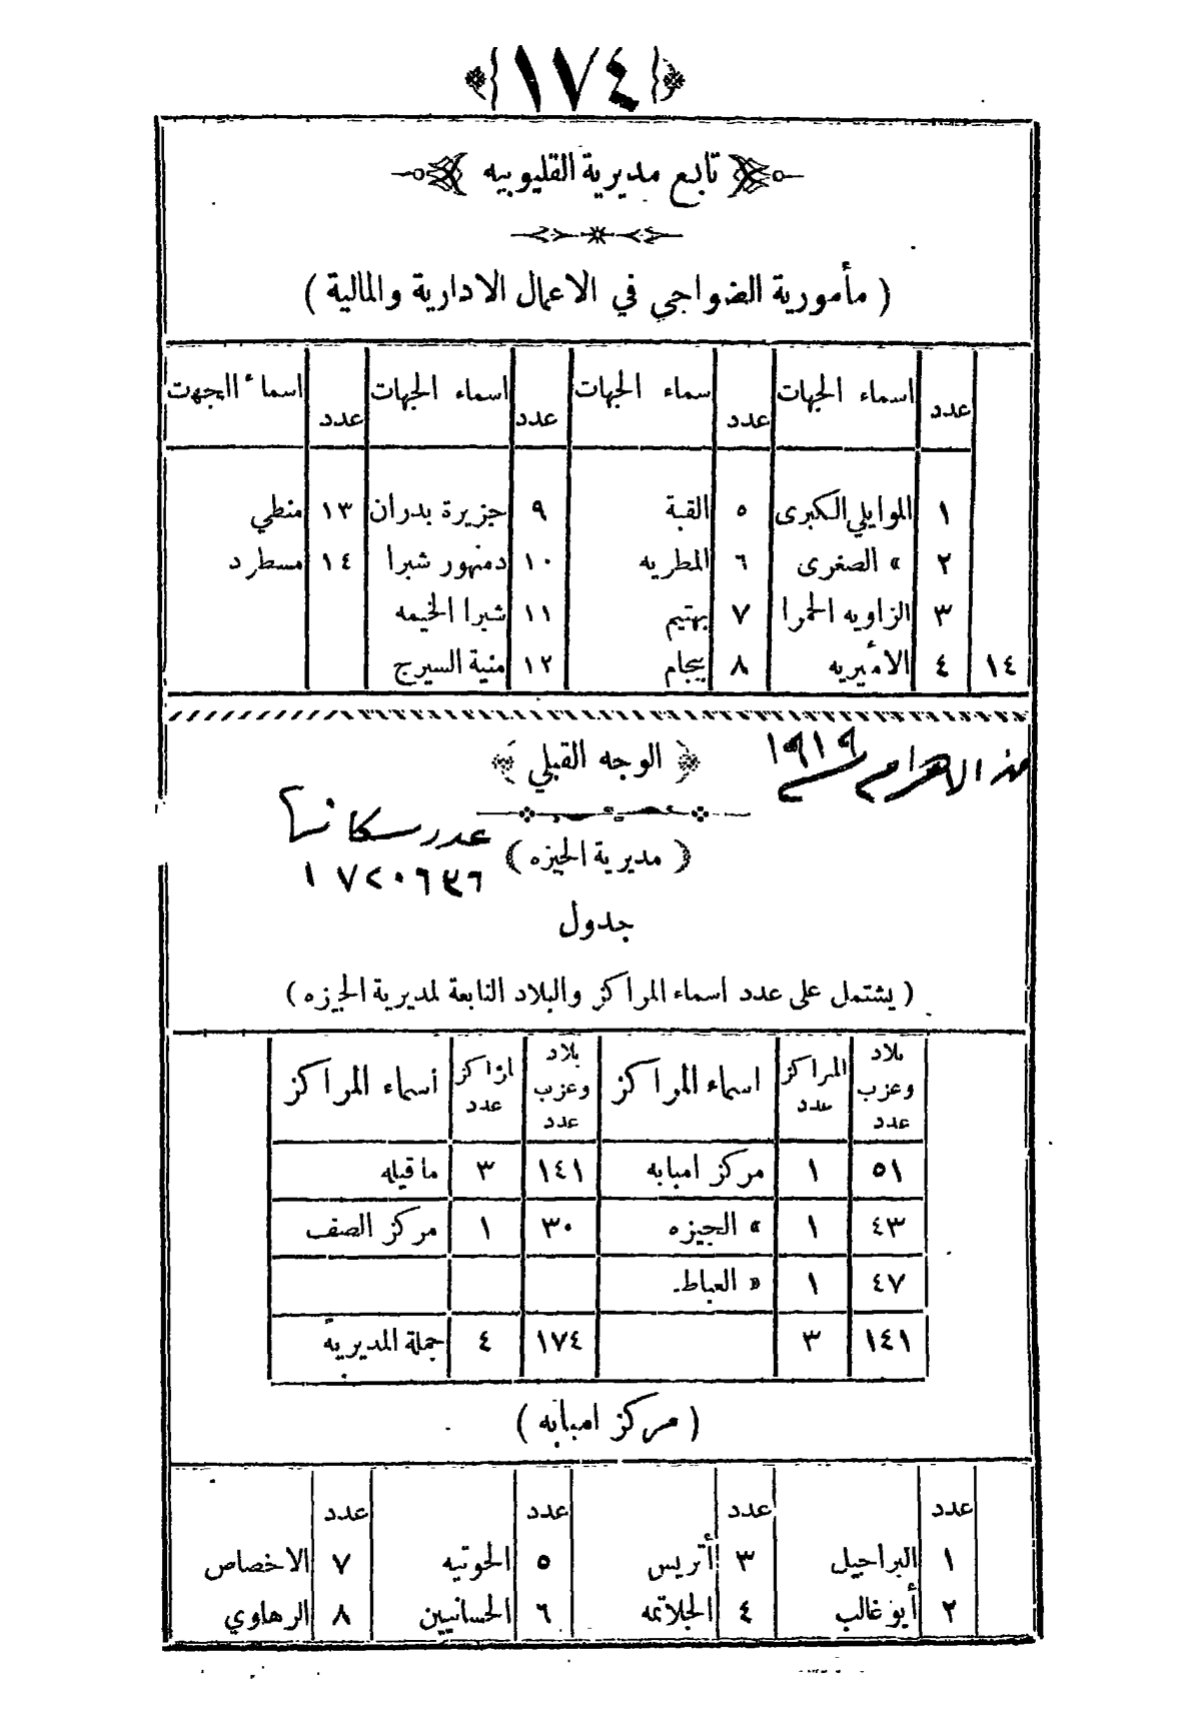 ١٧٤
تابع مديرية القليوبيه
( مأمورية الضواحي في الاعمال الادارية والمالية )
عدد اسماء الجهات عدد سماء الجهات عدد اسماء الجهات عدد اسماء الجهت
١ الموايلي الكبرى ٥ القبة ٩ جزيرة بدران ١٣ منطي
٢ » الصغرى ٦ المطريه ١٠ دمنهور شبرا ١٤ مسطرد
٣ الزاويه الحمرا ٧ بهتيم ١١ شبرا الخيمه
١٤ ٤ الأميريه ٨ بيجام ١٢ منية السيرج
الوجه القبلي
الاهرام ١٩١٩
عدد سكانها
( مديرية الجيزه )
جدول
( يشتمل على عدد اسماء المراكز والبلاد التابعة لمديرية الجيزه )
بلاد وعزب عدد المراكز عدد اسماء المراكز بلاد وعزب عدد المراكز عدد أسماء المراكز
٥١ ١ مركز امبابه ١٤١ ٣ ماقبله
٤٣ ١ » الجيزه ٣٠ ١ مركز الصف
٤٧ ١ » العياط
١٤١ ٣ ١٧٤ ٤ جملة المديرية
( مركز امبابه )
عدد عدد عدد عدد
١ البراجيل ٣ أتريس ٥ الحوتيه ٧ الاخصاص
٢ أبو غالب ٤ الجلاتمه ٦ الحسانيين ٨ الرهاوي